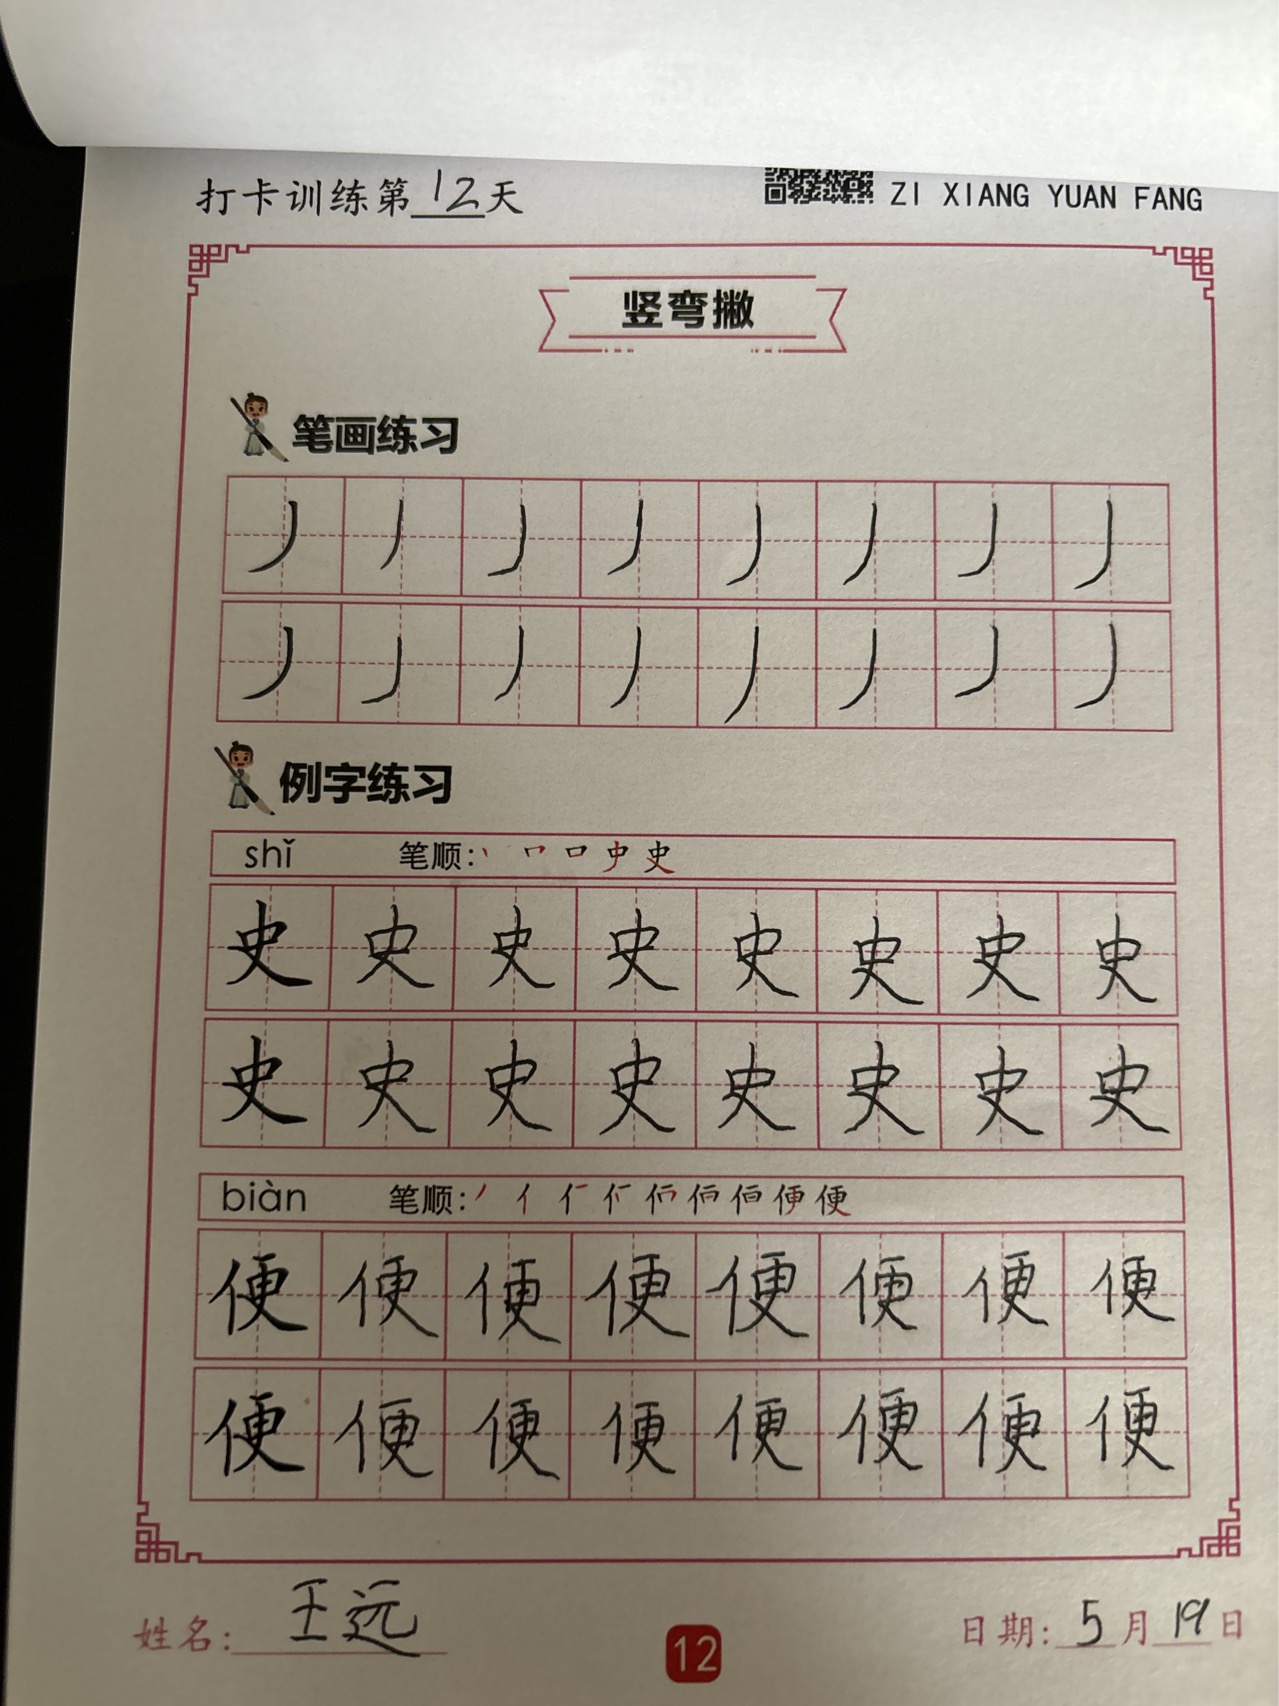 打卡训练第12天 ZI XIANG YUAN FANG
竖弯撇
笔画练习
丿 丿 丿 丿 丿 丿 丿 丿
丿 丿 丿 丿 丿 丿 丿 丿
例字练习
shǐ 笔顺: 丶 𠃍 口 史 史
史 史 史 史 史 史 史 史
史 史 史 史 史 史 史 史
biàn 笔顺:
便 便 便 便 便 便 便 便
便 便 便 便 便 便 便 便
姓名: 王远 12 日期: 5月19日